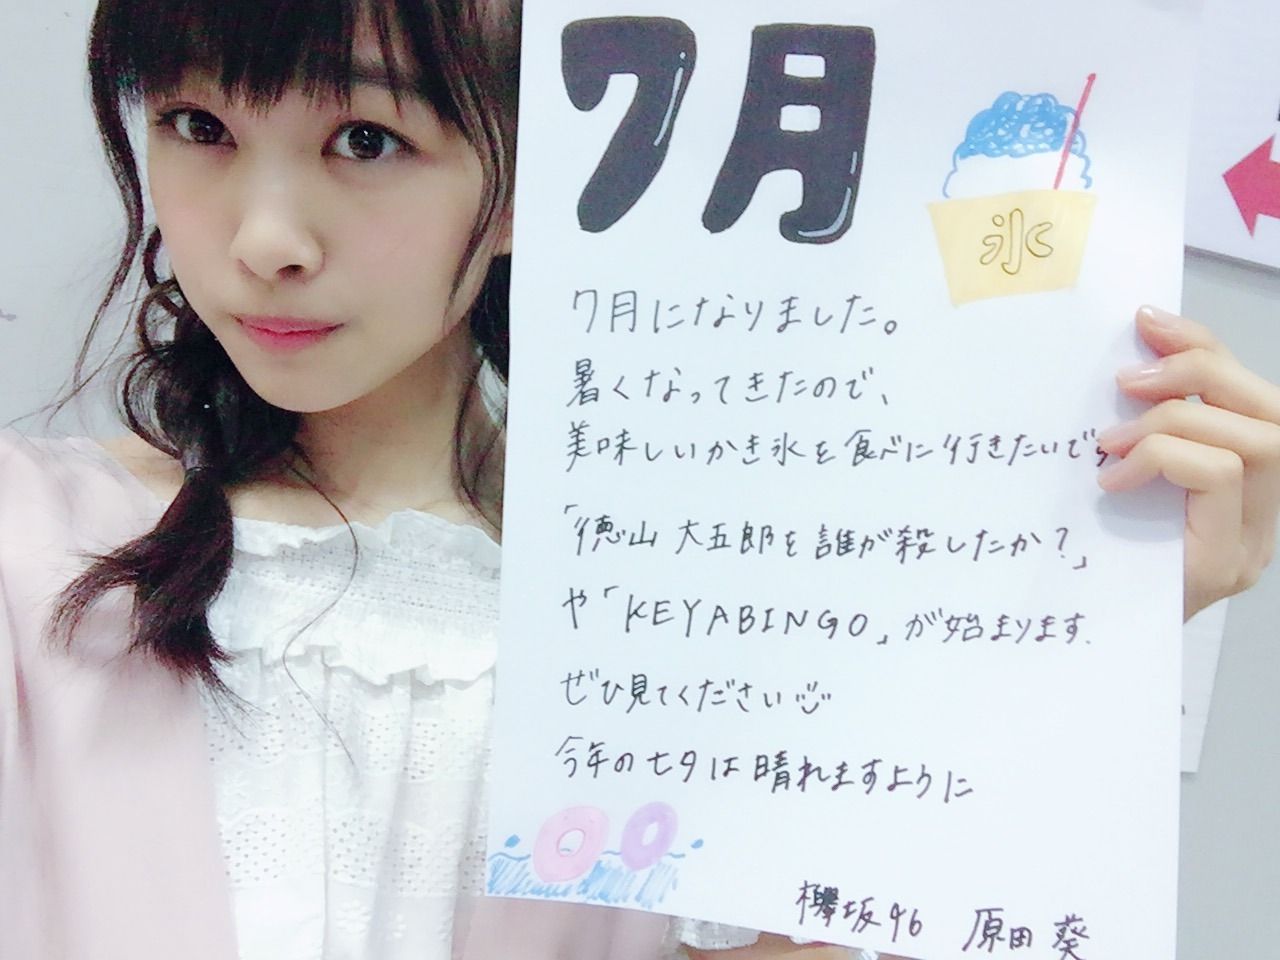 7月
氷
7月になりました。
暑くなってきたので、
美味しいかき氷を食べに行きたいです
「徳山大五郎を誰が殺したか？」
や「KEYABINGO」が始まります.
ぜひ見てください
今年の七夕は晴れますように
欅坂46 原田 葵